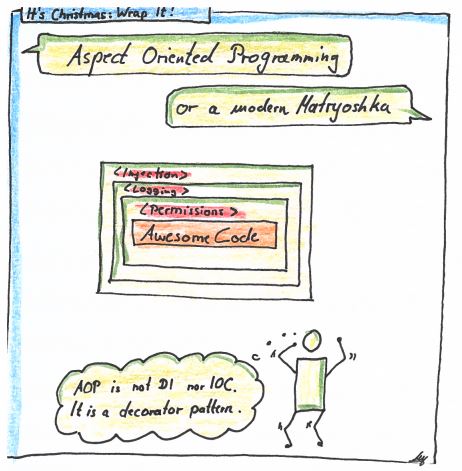 It's Christmas: Wrap It!
Aspect Oriented Programming
or a modern Matryoshka
<Injection>
<Logging>
<Permissions>
Awesome Code
AOP is not DI nor IOC.
It is a decorator pattern.